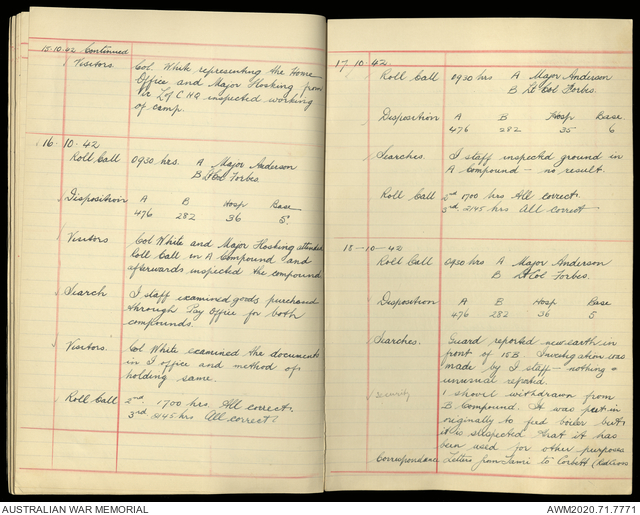 15.10.42 Continued
Visitors Col. White representing the Home
Office and Major Hosking from
L of C HQ inspected working
of camp.
16.10.42
Roll Call 0930 hrs. A Major Anderson
B Lt Col Forbes.
Disposition A B Hosp Base
476 282 36 5.
Visitors Col White and Major Hosking attended
Roll Call in A Compound and
afterwards inspected the compound
Search I staff examined goods purchased
through Pay Office for both
compounds.
Visitors. Col White examined the documents
in I office and method of
holding same.
Roll Call 2nd 1700 hrs. All correct.
3rd 2145 hrs All correct.
17.10.42.
Roll Call 0930 hrs A Major Anderson
B Lt Col Forbes.
Disposition A B Hosp Base.
476 282 35 6
Searches. I staff inspected ground in
A compound – no result.
Roll Call 2nd 1700 hrs All correct.
3rd 2145 hrs All correct
18-10-42
Roll Call 0930 hrs A Major Anderson
B Lt Col Forbes.
Disposition A B Hosp Base
476 282 36 5
Searches. Guard reported new earth in
front of 15B. Investigation was
made by I staff – nothing
unusual reported.
Security 1 shovel withdrawn from
B Compound. It was put in
originally to feed boiler but
it is suspected that it has
been used for other purposes
Correspondence Letters from to Corbett
AUSTRALIAN WAR MEMORIAL
AWM2020.71.7771